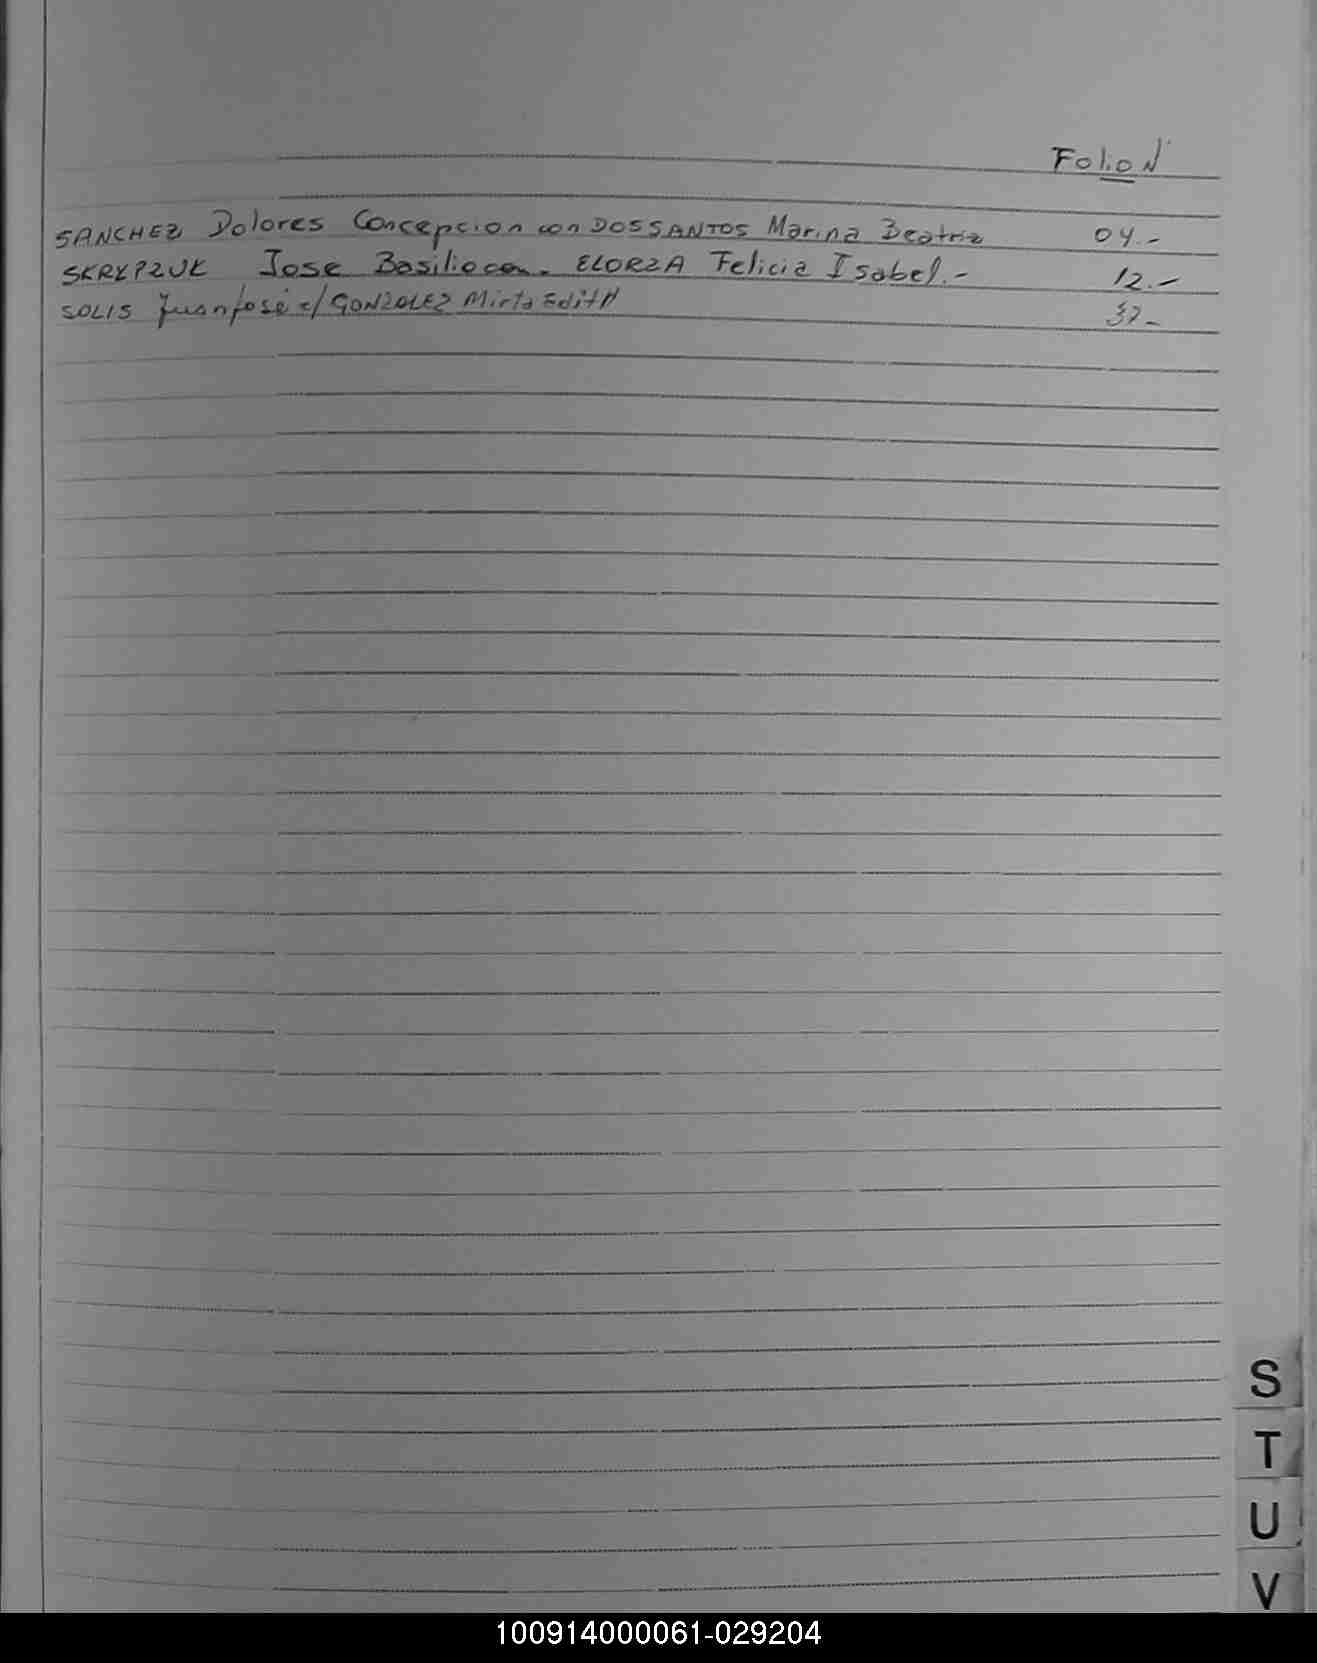 Folio N°
SANCHEZ Dolores Concepcion con DOSSANTOS Marina Beatriz 04.-
SKRYPZUK Jose Basilio con. ELORZA Felicia Isabel.- 12.-
SOLIS Juan José c/ GONZOLEZ Mirta EditH 37-
S
T
U
V
100914000061-029204